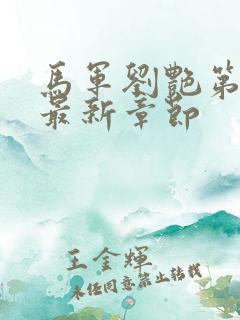 馬軍劉艷第
最新章節
王金輝
未經同意禁止轉載